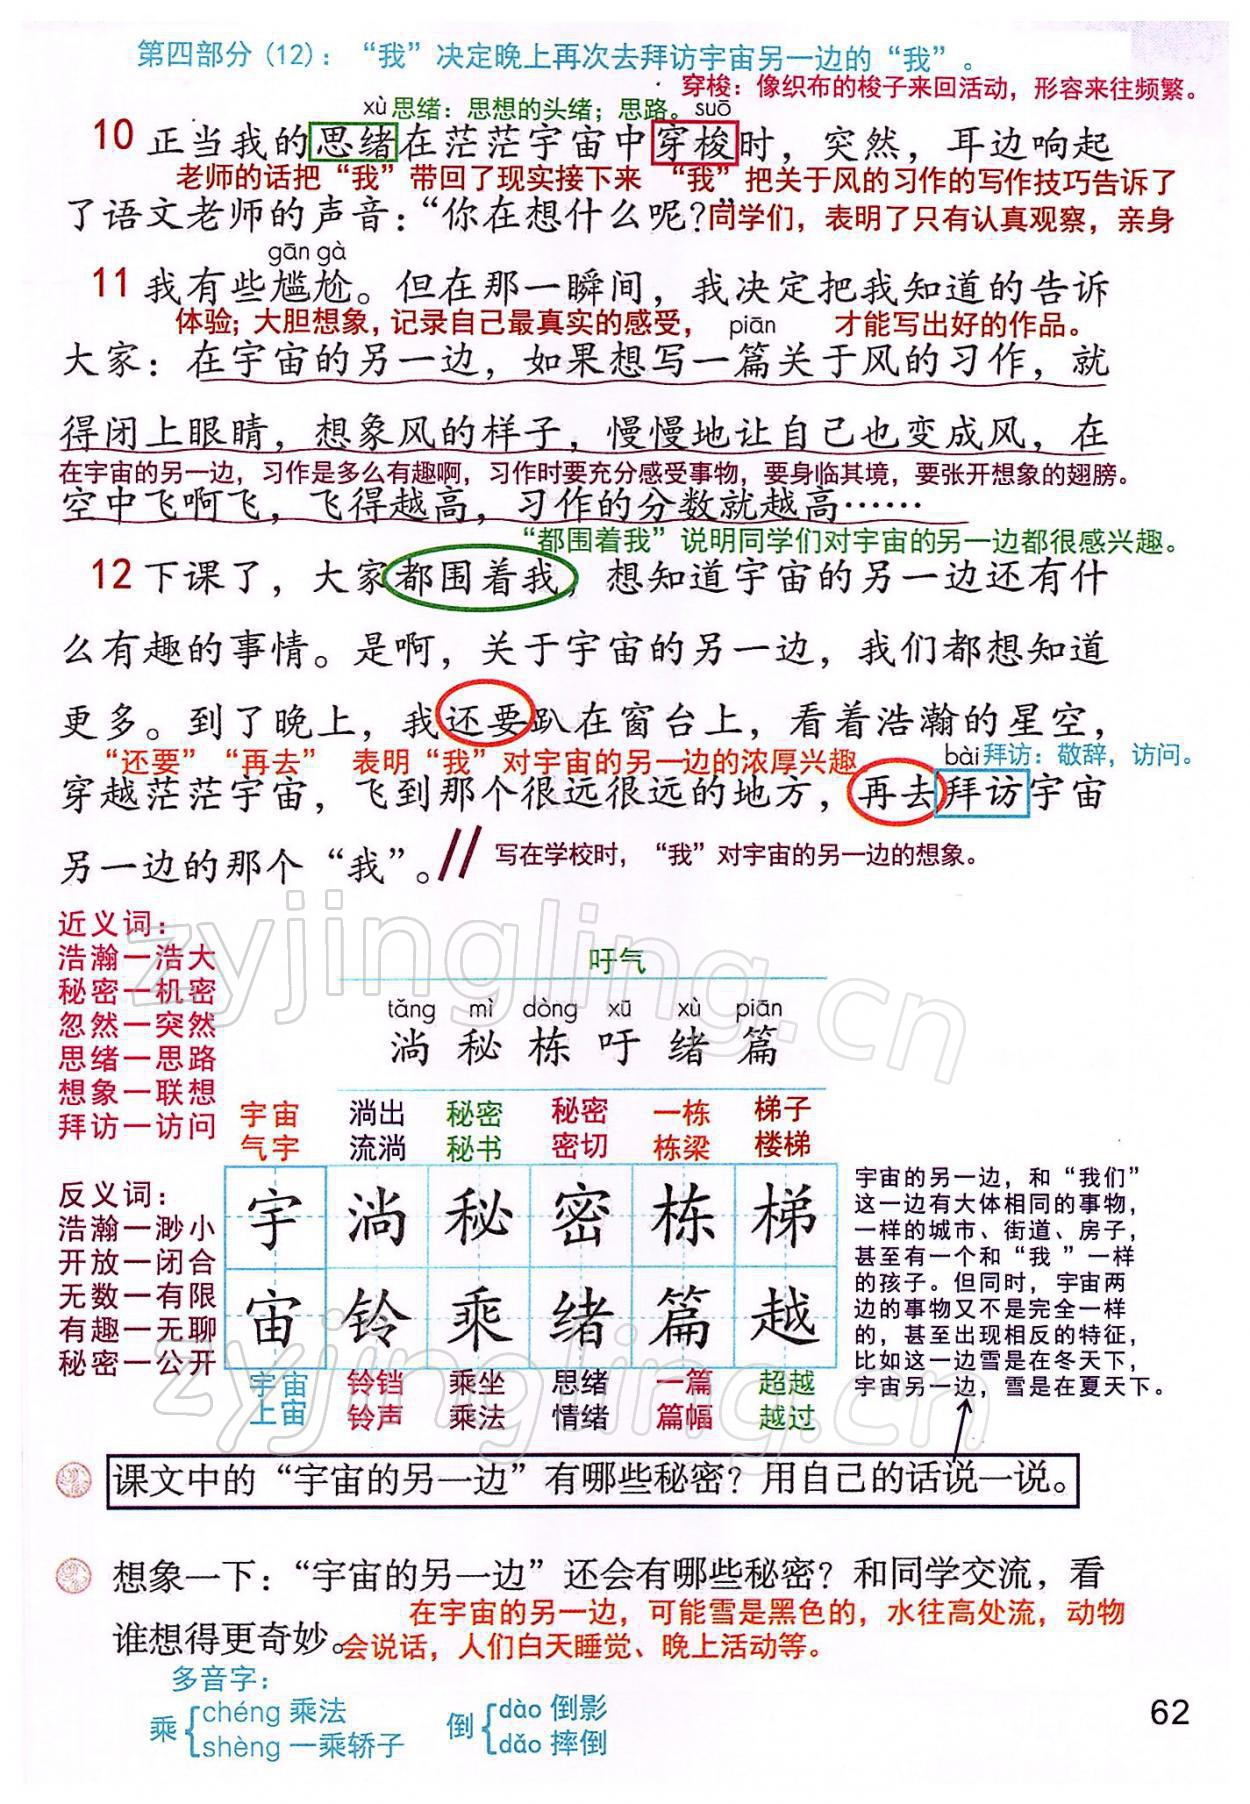 第四部分(12)：“我”决定晚上再次去拜访宇宙另一边的“我”。
穿梭：像织布的梭子来回活动，形容来往频繁。
xù 思绪：思想的头绪；思路。 suō
10 正当我的思绪在茫茫宇宙中穿梭时，突然，耳边响起
老师的话把“我”带回了现实接下来 “我”把关于风的习作的写作技巧告诉了
了语文老师的声音：“你在想什么呢？”同学们，表明了只有认真观察，亲身
gān gà
11 我有些尴尬。但在那一瞬间，我决定把我知道的告诉
体验；大胆想象，记录自己最真实的感受， piān 才能写出好的作品。
大家：在宇宙的另一边，如果想写一篇关于风的习作，就
得闭上眼睛，想象风的样子，慢慢地让自己也变成风，在
在宇宙的另一边，习作是多么有趣啊，习作时要充分感受事物，要身临其境，要张开想象的翅膀。
空中飞啊飞，飞得越高，习作的分数就越高……
“都围着我”说明同学们对宇宙的另一边都很感兴趣。
12 下课了，大家都围着我，想知道宇宙的另一边还有什
么有趣的事情。是啊，关于宇宙的另一边，我们都想知道
更多。到了晚上，我还要趴在窗台上，看着浩瀚的星空，
“还要”“再去” 表明“我”对宇宙的另一边的浓厚兴趣 bài 拜访：敬辞，访问。
穿越茫茫宇宙，飞到那个很远很远的地方，再去拜访宇宙
另一边的那个“我”。// 写在学校时，“我”对宇宙的另一边的想象。
近义词：
浩瀚—浩大
秘密—机密
忽然—突然
思绪—思路
想象—联想
拜访—访问
吁气
tǎng mì dòng xū xù piān
淌 秘 栋 吁 绪 篇
宇宙 淌出 秘密 秘密 一栋 梯子
气宇 流淌 秘书 密切 栋梁 楼梯
宇 淌 秘 密 栋 梯
宙 铃 乘 绪 篇 越
宇宙 铃铛 乘坐 思绪 一篇 超越
上宙 铃声 乘法 情绪 篇幅 越过
反义词：
浩瀚—渺小
开放—闭合
无数—有限
有趣—无聊
秘密—公开
宇宙的另一边，和“我们”
这一边有大体相同的事物，
一样的城市、街道、房子，
甚至有一个和“我 ”一样
的孩子。但同时，宇宙两
边的事物又不是完全一样
的，甚至出现相反的特征，
比如这一边雪是在冬天下，
宇宙另一边，雪是在夏天下。
课文中的“宇宙的另一边”有哪些秘密？用自己的话说一说。
想象一下：“宇宙的另一边”还会有哪些秘密？和同学交流，看
在宇宙的另一边，可能雪是黑色的，水往高处流，动物
谁想得更奇妙。会说话，人们白天睡觉、晚上活动等。
多音字：
乘 chéng 乘法
shèng 一乘轿子
倒 dào 倒影
dǎo 摔倒
62
zyjingling.cn
zyjingling.cn